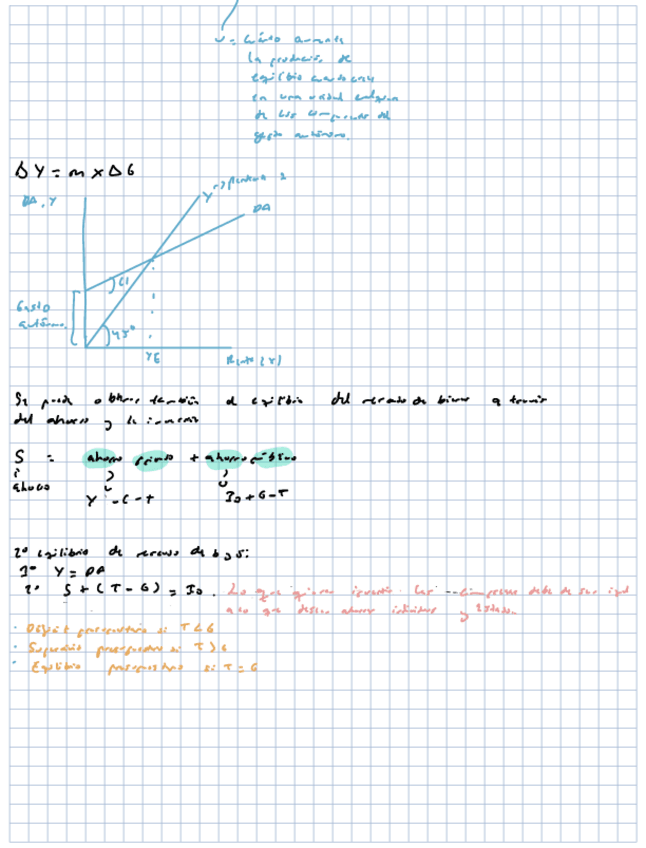 la producción de
equilibrio cuando crece
en una unidad cualquiera
de los componentes del
gasto autónomo.
ΔY = m x ΔG
Y → pendiente 1
DA, Y
DA
c1
Gasto
autónomo
45°
YE
Renta (Y)
Se puede obtener también el equilibrio del mercado de bienes a través
del ahorro y la inversión
S = ahorro privado + ahorro público
ahorro
Y - C - T
I0 + G - T
2º equilibrio de mercado de b y s:
1º Y = DA
2º S + (T - G) = I0. Lo que quieren invertir las empresas debe de ser igual
a lo que desean ahorrar individuos y Estado.
· Déficit presupuestario si T < G
· Superávit presupuestario si T > G
· Equilibrio presupuestario si T = G